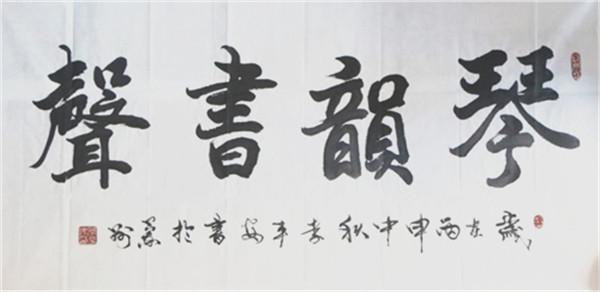 琴韻書聲
歲在丙申中秋李平安書於